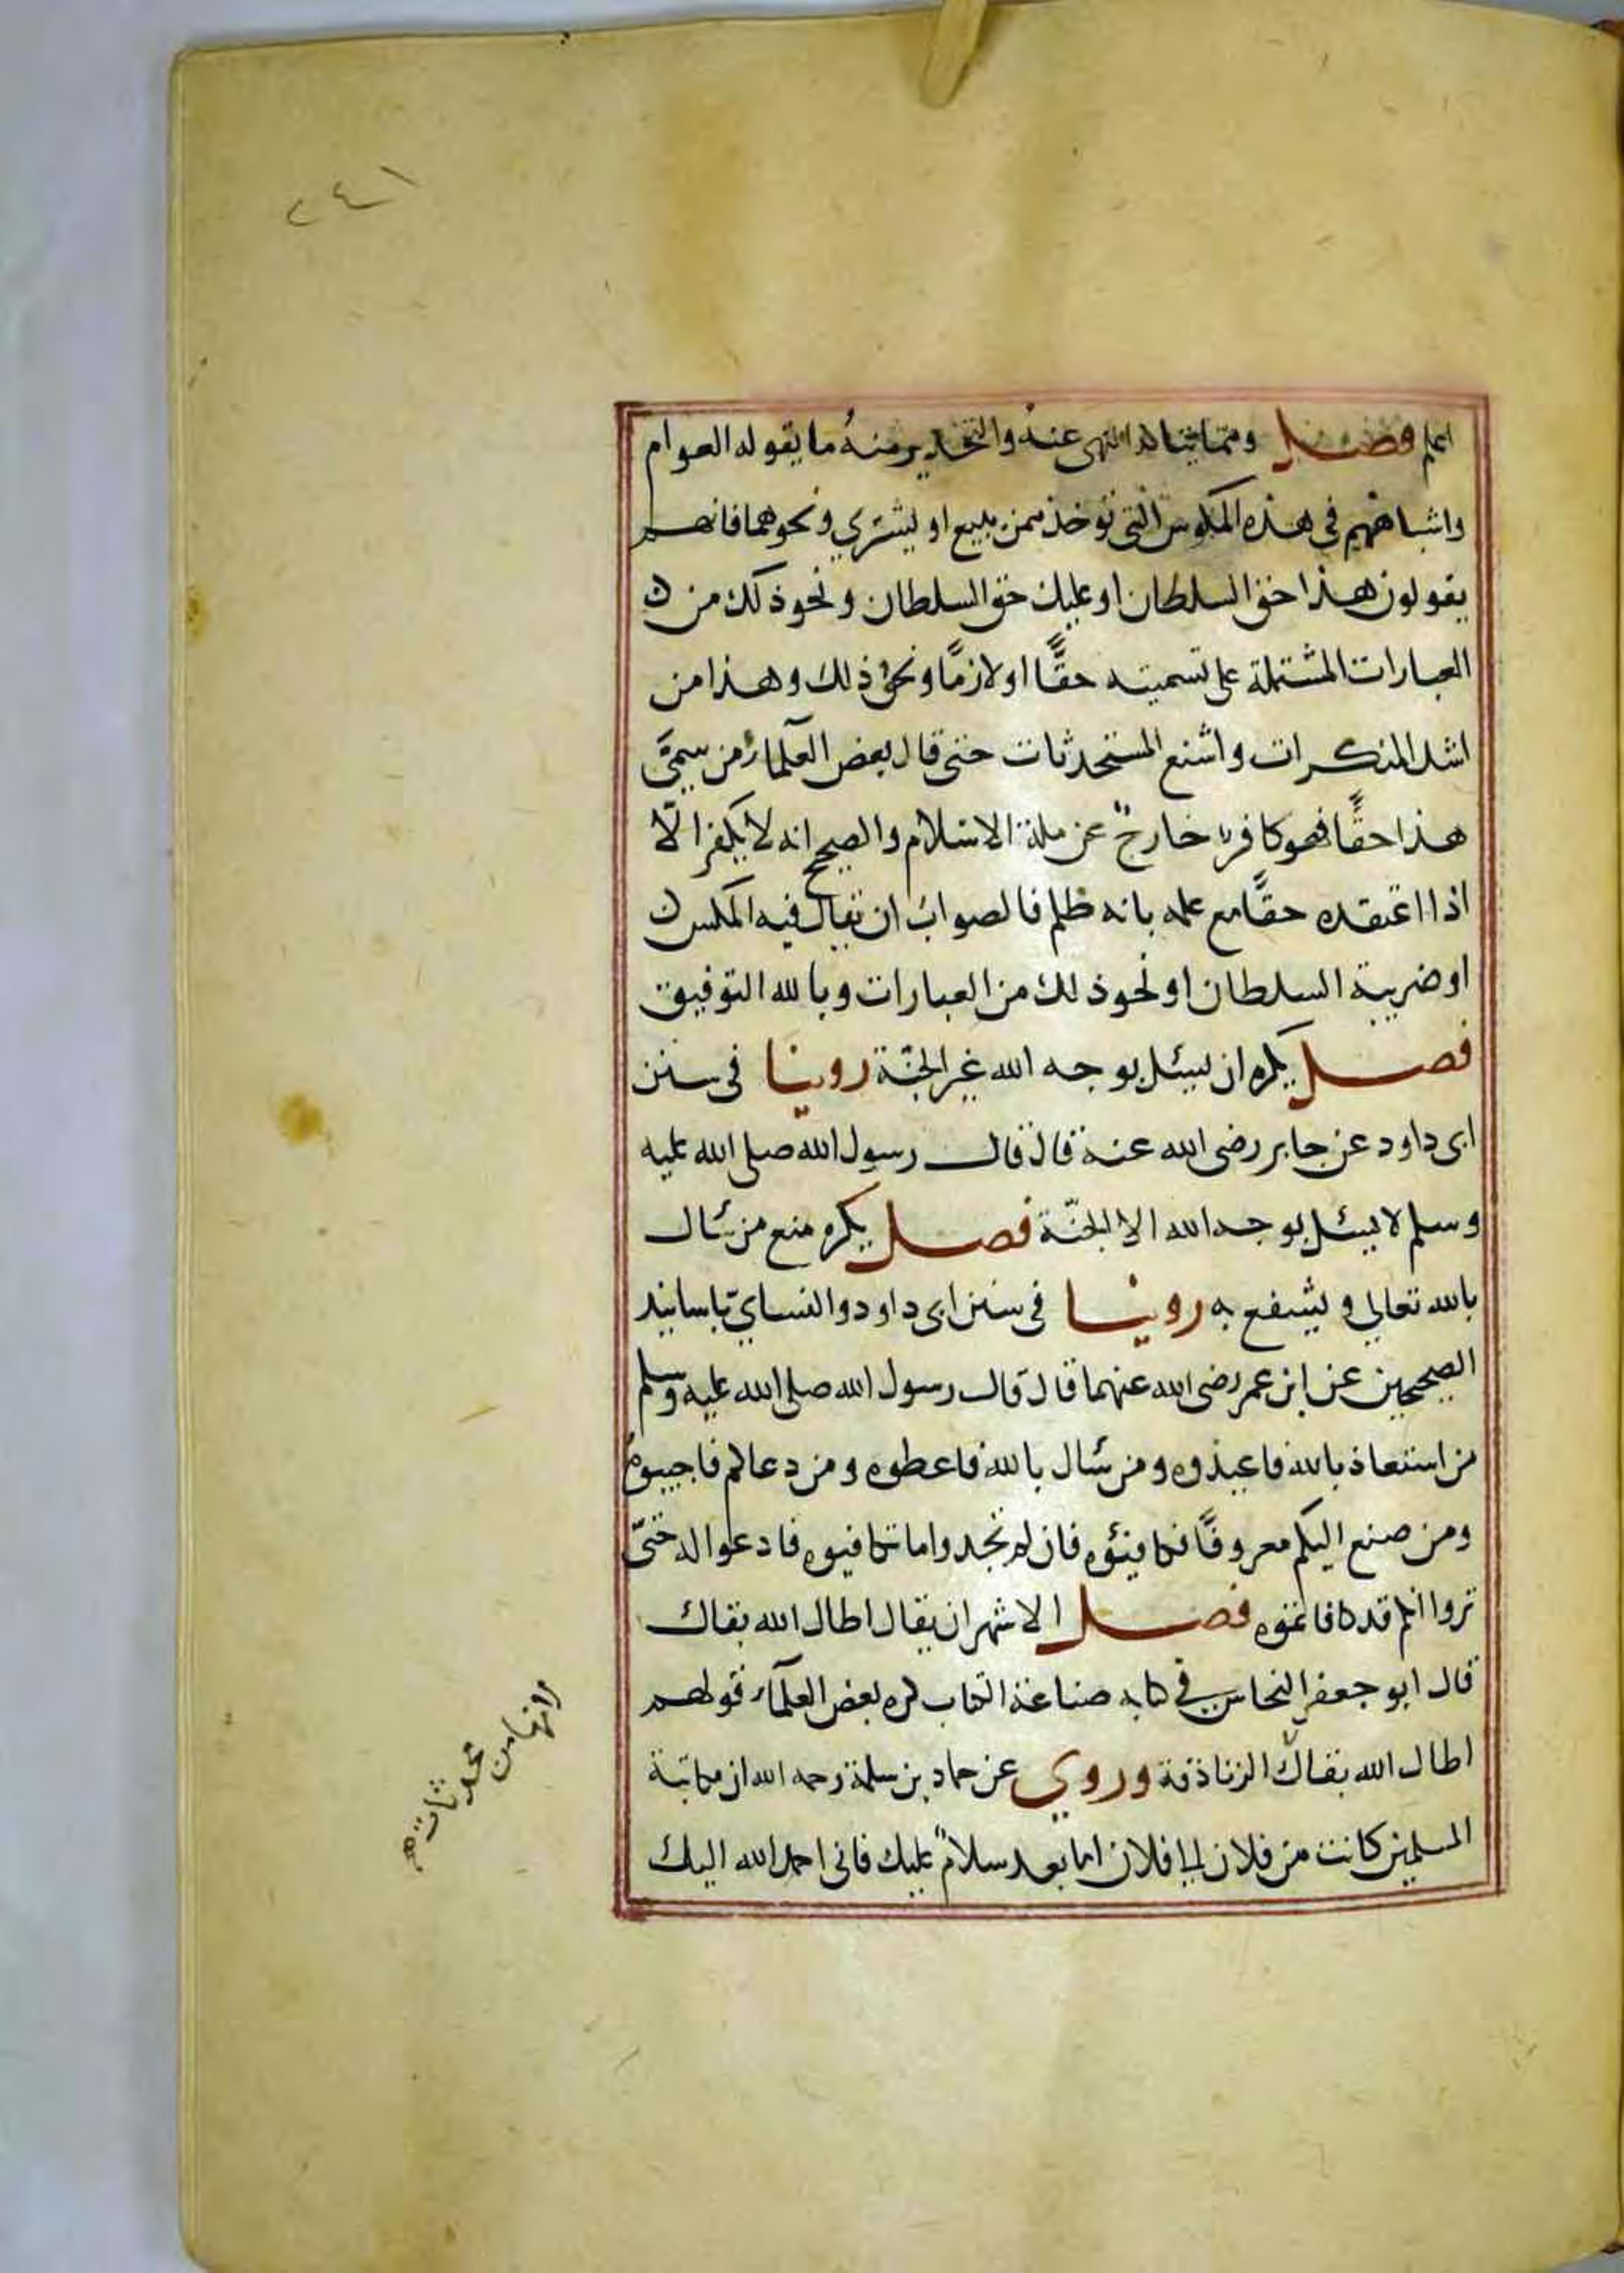 ٢٤١
اعلم فصل ومما يتاكد النهى عنه والتحذير منه ما يقوله العوام
واشباههم فى هذه المكوس التى توخذ ممن يبيع او يشترى ونحوهما فانهم
يقولون هذا حق السلطان او عليك حق السلطان ونحو ذلك من
العبارات المشتملة على تسميته حقًّا او لازمًا ونحو ذلك وهذا من
اشد المنكرات واشنع المستحدثات حتى قال بعض العلماء من سمّى
هذا حقًّا فهو كافر خارج عن ملة الاسلام والصحيح انه لا يكفر الّا
اذا اعتقده حقًّا مع علمه بانه ظلم فالصواب ان يقال فيه المكس
او ضريبة السلطان او نحو ذلك من العبارات وبالله التوفيق
فصل يكره ان يسئل بوجه الله غير الجنّة روينا فى سنن
ابى داود عن جابر رضى الله عنه قال قال رسول الله صلى الله عليه
وسلم لا يسئل بوجه الله الا الجنّة فصل يكره منع من سئال
بالله تعالى ويشفع به روينا فى سنن ابى داود والنساىّ باسانيد
الصحيحين عن ابن عمر رضى الله عنهما قال قال رسول الله صلى الله عليه وسلم
من استعاذ بالله فاعيذوه ومن سئال بالله فاعطوه ومن دعاكم فاجيبوه
ومن صنع اليكم معروفًا فكافيئوه فان لم تجدوا ما تكافيوه فادعوا له حتّى
تروا انكم قد كافاتموه فصل الاشهر ان يقال اطال الله بقاك
قال ابو جعفر النحاس فى كتابه صناعة الكتاب كره بعض العلماء قولهم
اطال الله بقاك الزناذقة وروي عن حماد بن سلمة رحمه الله ان مكاتبة
المسلمين كانت من فلان الى فلان اما بعد سلامٌ عليك فانى احمد الله اليك
وانها من محدثات